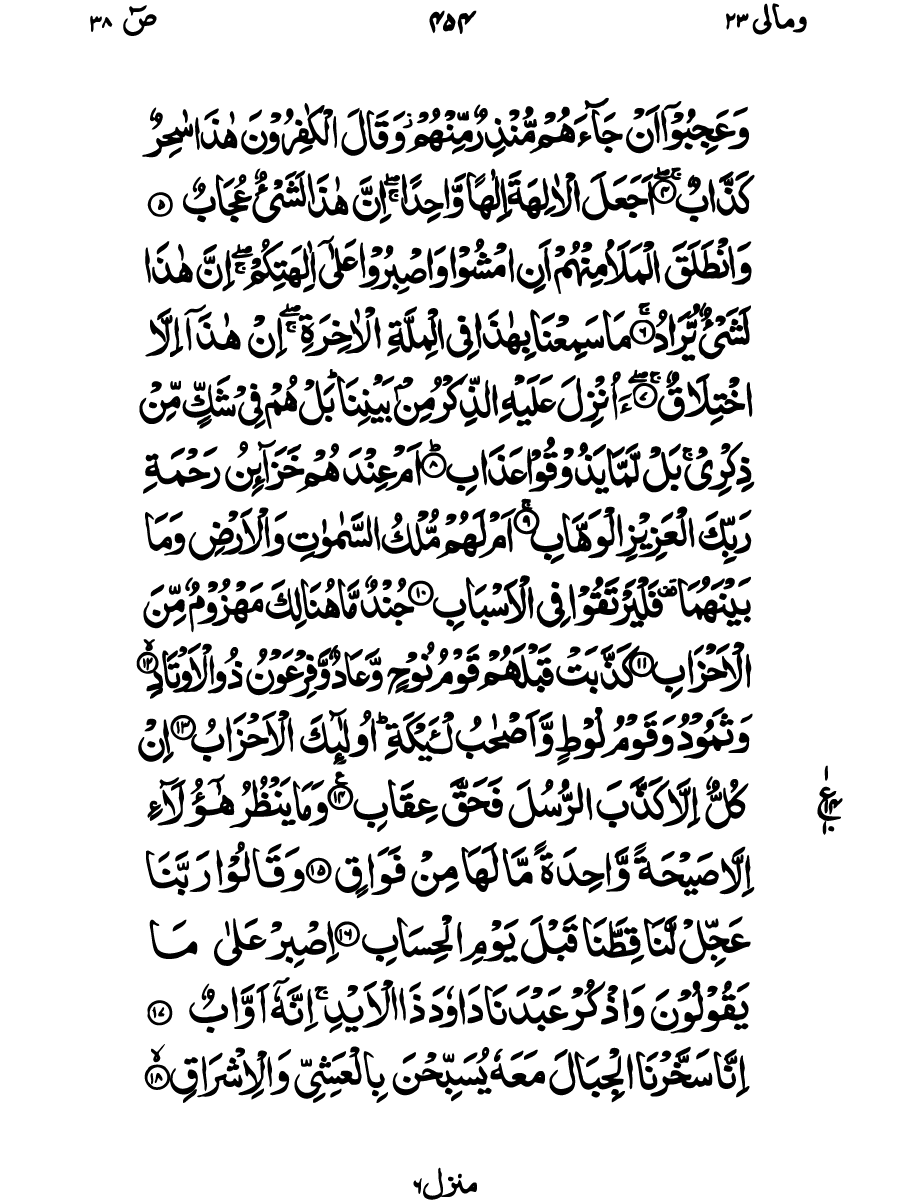 ومالی ۲۳ ۴۵۴ صٓ ۳۸
وَعَجِبُوْۤا اَنْ جَآءَهُمْ مُّنْذِرٌ مِّنْهُمْ ؗ وَقَالَ الْكٰفِرُوْنَ هٰذَا سٰحِرٌ
كَذَّابٌ ۖۚ ﴿۴﴾ اَجَعَلَ الْاٰلِهَةَ اِلٰهًا وَّاحِدًا ۖۚ اِنَّ هٰذَا لَشَیْءٌ عُجَابٌ ﴿۵﴾
وَانْطَلَقَ الْمَلَاُ مِنْهُمْ اَنِ امْشُوْا وَاصْبِرُوْا عَلٰۤی اٰلِهَتِكُمْ ۖۚ اِنَّ هٰذَا
لَشَیْءٌ یُّرَادُ ۚ ﴿۶﴾ مَا سَمِعْنَا بِهٰذَا فِی الْمِلَّةِ الْاٰخِرَةِ ۖۚ اِنْ هٰذَاۤ اِلَّا
اخْتِلَاقٌ ۖۚ ﴿۷﴾ ءَاُنْزِلَ عَلَیْهِ الذِّكْرُ مِنْۢ بَیْنِنَا ؕ بَلْ هُمْ فِیْ شَكٍّ مِّنْ
ذِكْرِیْ ۚ بَلْ لَّمَّا یَذُوْقُوْا عَذَابِ ؕ ﴿۸﴾ اَمْ عِنْدَهُمْ خَزَآىِٕنُ رَحْمَةِ
رَبِّكَ الْعَزِیْزِ الْوَهَّابِ ۚ ﴿۹﴾ اَمْ لَهُمْ مُّلْكُ السَّمٰوٰتِ وَالْاَرْضِ وَمَا
بَیْنَهُمَا ۫ فَلْیَرْتَقُوْا فِی الْاَسْبَابِ ﴿۱۰﴾ جُنْدٌ مَّا هُنَالِكَ مَهْزُوْمٌ مِّنَ
الْاَحْزَابِ ﴿۱۱﴾ كَذَّبَتْ قَبْلَهُمْ قَوْمُ نُوْحٍ وَّعَادٌ وَّفِرْعَوْنُ ذُو الْاَوْتَادِ ۙ ﴿۱۲﴾
وَثَمُوْدُ وَقَوْمُ لُوْطٍ وَّاَصْحٰبُ لْـَٔیْكَةِ ؕ اُولٰٓىِٕكَ الْاَحْزَابُ ﴿۱۳﴾ اِنْ
كُلٌّ اِلَّا كَذَّبَ الرُّسُلَ فَحَقَّ عِقَابِ ﴿۱۴﴾ ع وَمَا یَنْظُرُ هٰۤؤُلَآءِ
۱ ع ۱۴ ۱۰
اِلَّا صَیْحَةً وَّاحِدَةً مَّا لَهَا مِنْ فَوَاقٍ ﴿۱۵﴾ وَقَالُوْا رَبَّنَا
عَجِّلْ لَّنَا قِطَّنَا قَبْلَ یَوْمِ الْحِسَابِ ﴿۱۶﴾ اِصْبِرْ عَلٰی مَا
یَقُوْلُوْنَ وَاذْكُرْ عَبْدَنَا دَاوٗدَ ذَا الْاَیْدِ ۚ اِنَّهٗۤ اَوَّابٌ ﴿۱۷﴾
اِنَّا سَخَّرْنَا الْجِبَالَ مَعَهٗ یُسَبِّحْنَ بِالْعَشِیِّ وَالْاِشْرَاقِ ۙ ﴿۱۸﴾
منزل۶